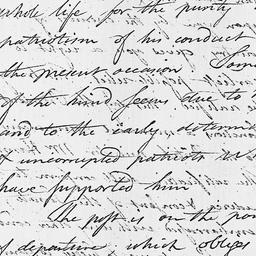 whole life for the purity
patriotism of his conduct
the present occasion Some
of the kind seems due to
and to the early determin
of uncorrupted patriots
have supported him
The post is on the po
of departure which obliges